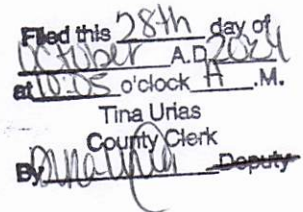 Filed this 28th day of
October A.D. 2024
at 10:05 o'clock A .M.
Tina Urias
County Clerk
By Deputy